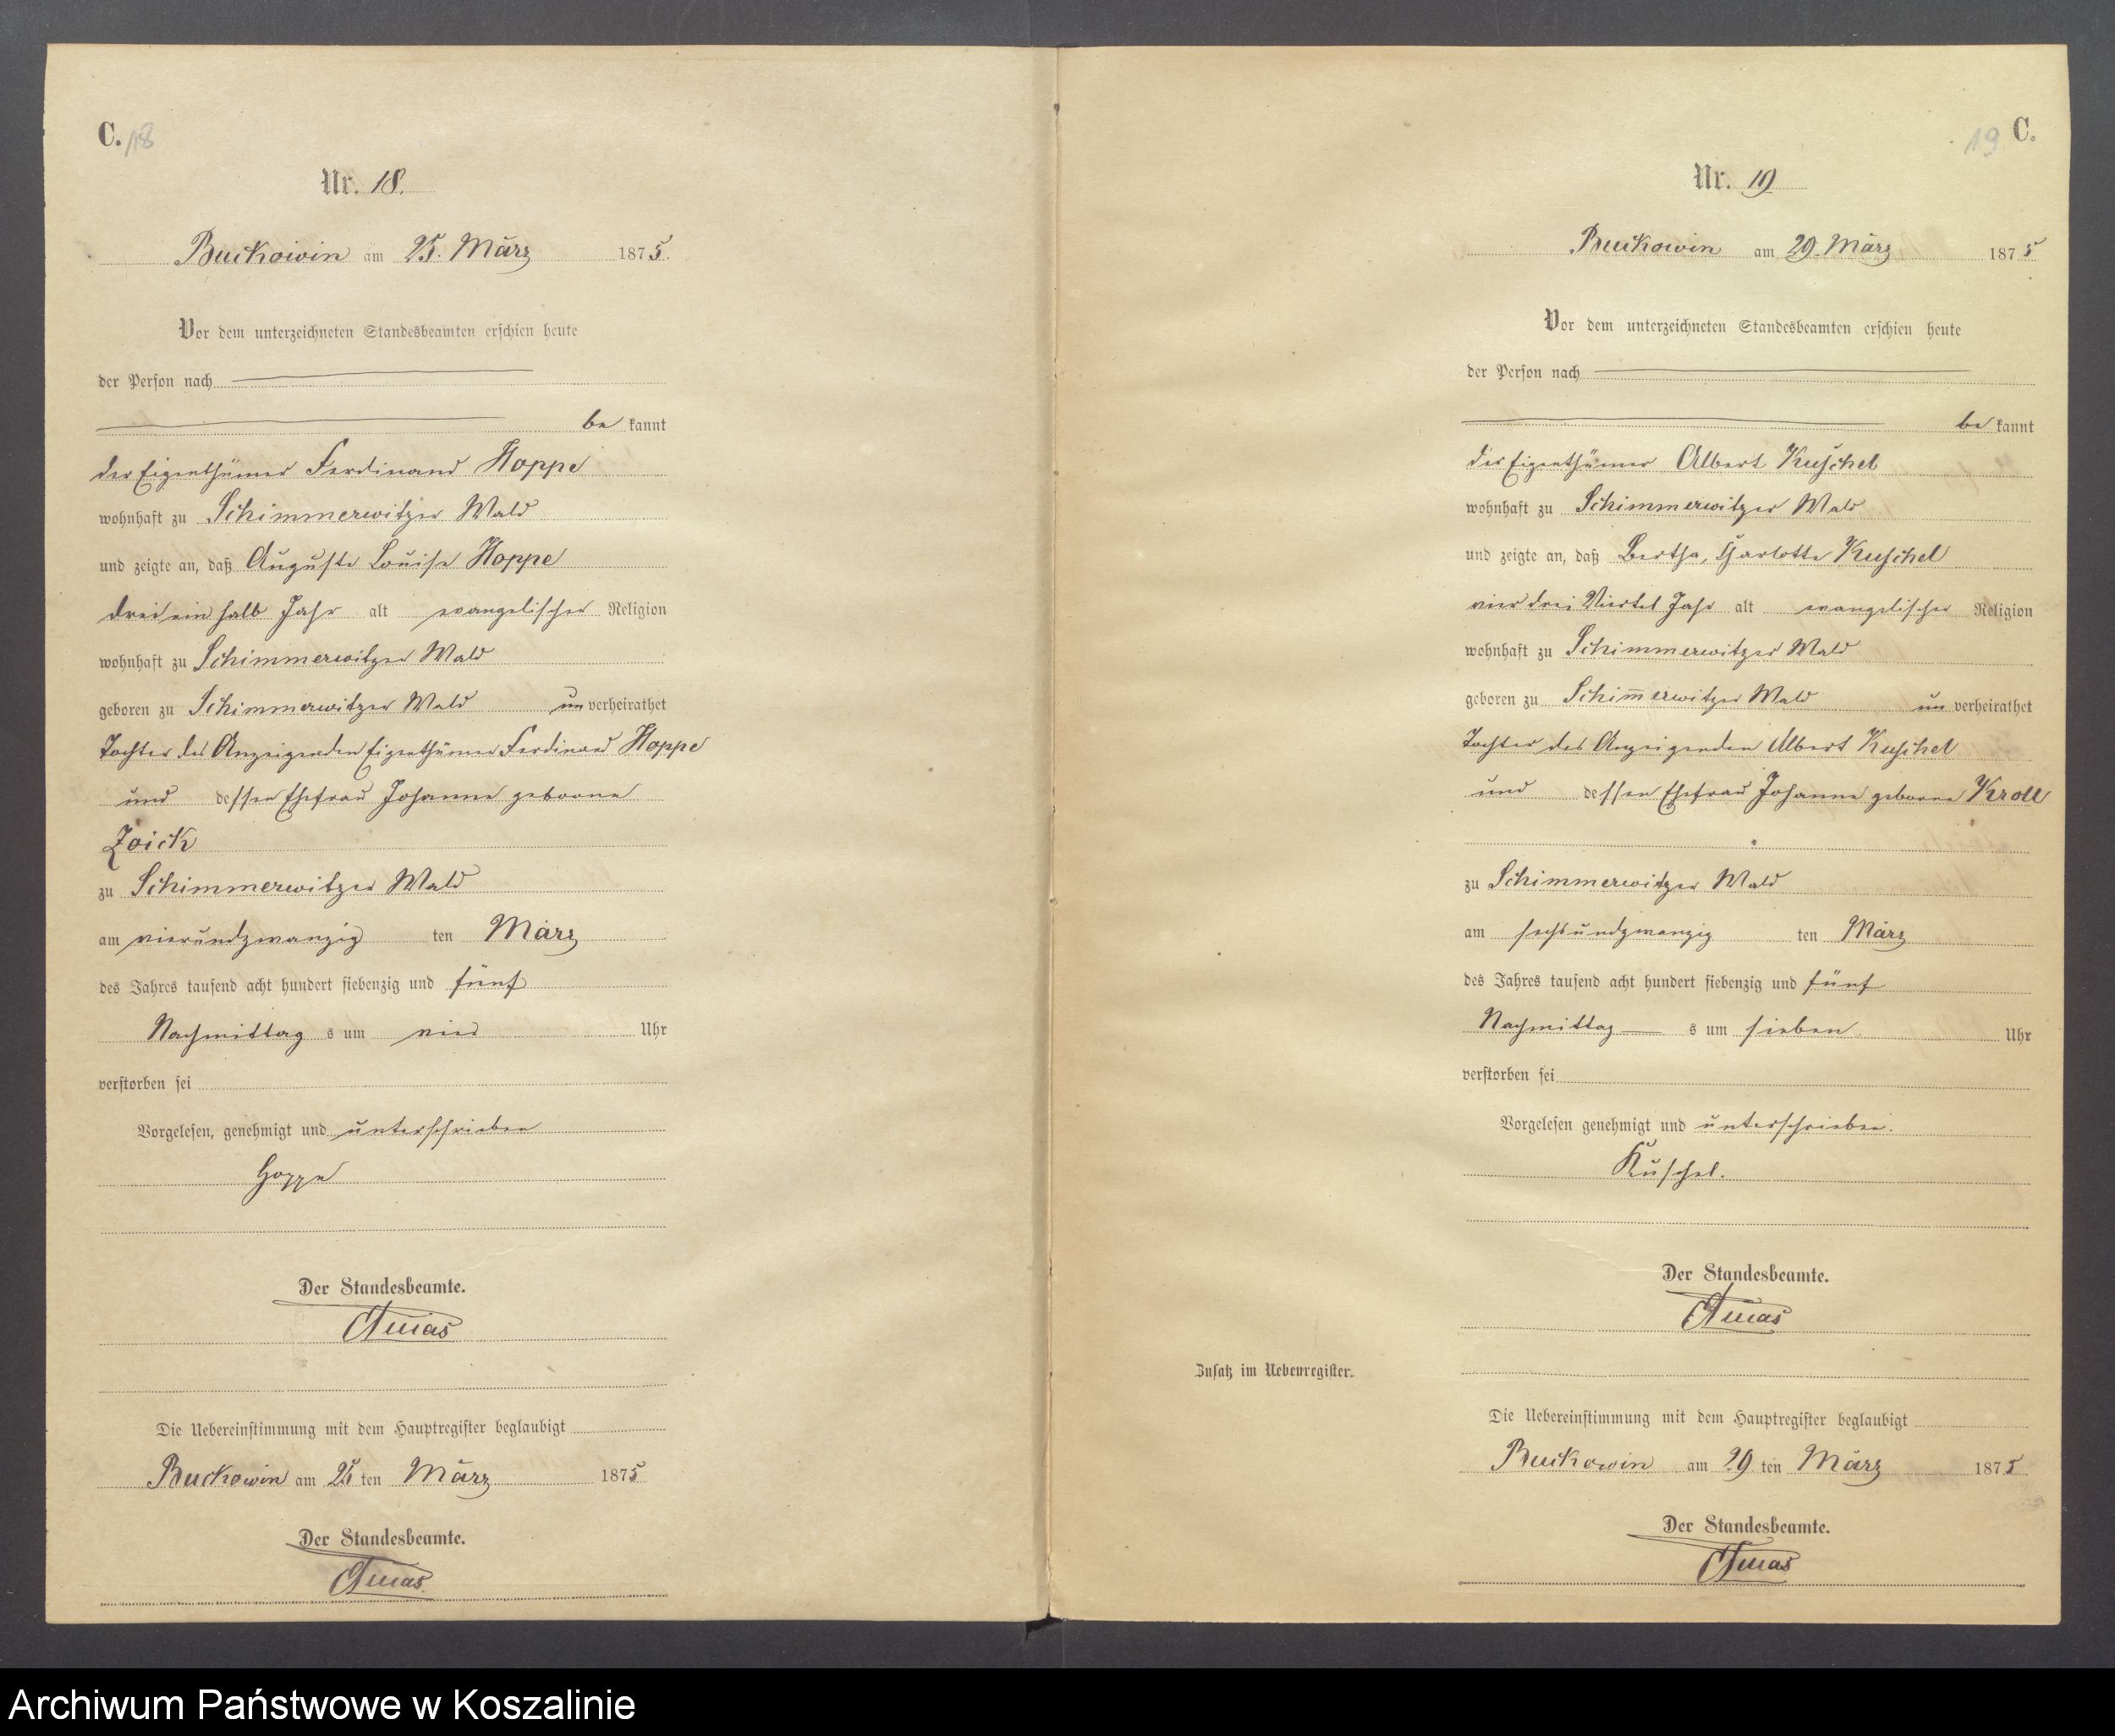 C. 18
Nr. 18.
Buckowin am 25. März 1875.
Vor dem unterzeichneten Standesbeamten erschien heute
der Person nach
be kannt
der Eigenthümer Ferdinand Hoppe
wohnhaft zu Schimmerwitzer Wald
und zeigte an, daß Auguste Louise Hoppe
drei ein halb Jahr alt evangelischer Religion
wohnhaft zu Schimmerwitzer Wald
geboren zu Schimmerwitzer Wald un verheirathet
Tochter des Anzeigenden Eigenthümer Ferdinand Hoppe
und dessen Ehefrau Johanne geborne
Zoick
zu Schimmerwitzer Wald
am vierundzwanzig ten März
des Jahres tausend acht hundert siebenzig und fünf
Nachmittag s um vier Uhr
verstorben sei
Vorgelesen, genehmigt und unterschrieben
Hoppe
Der Standesbeamte.
Die Uebereinstimmung mit dem Hauptregister beglaubigt
Buckowin am 25 ten März 1875
Der Standesbeamte.
19 C.
Nr. 19
Buckowin am 29. März 1875
Vor dem unterzeichneten Standesbeamten erschien heute
der Person nach
be kannt
der Eigenthümer Albert Kuschel
wohnhaft zu Schimmerwitzer Wald
und zeigte an, daß Bertha, Charlotte Kuschel
vier drei Viertel Jahr alt evangelischer Religion
wohnhaft zu Schimmerwitzer Wald
geboren zu Schim̅erwitzer Wald un verheirathet
Tochter des Anzeigenden Albert Kuschel
und dessen Ehefrau Johanne geborne Kroll
zu Schimmerwitzer Wald
am sechsundzwanzig ten März
des Jahres tausend acht hundert siebenzig und fünf
Nachmittag s um sieben Uhr
verstorben sei
Vorgelesen genehmigt und unterschrieben.
Kuschel.
Der Standesbeamte.
Zusatz im Nebenregister.
Die Uebereinstimmung mit dem Hauptregister beglaubigt
Buckowin am 29 ten März 1875
Der Standesbeamte.
Archiwum Państwowe w Koszalinie